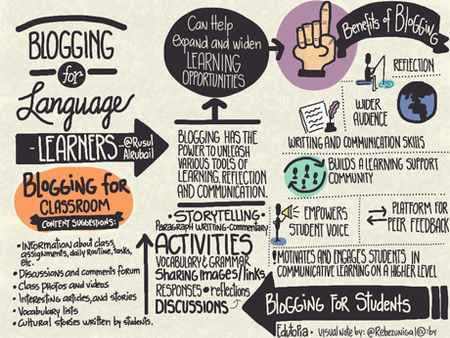 BLOGGING
for
Language
-LEARNERS-
@Rusul
Alrubail
Blogging for
CLASSROOM
CONTENT SUGGESTIONS:
• Information about class,
assignments, daily routine, tasks,
etc.
• Discussions and comments forum
• Class photos and videos
• Interesting articles, and stories
• Vocabulary lists
• Cultural stories written by students.
Can Help
expand and widen
LEARNING
OPPORTUNITIES
BLOGGING HAS THE
POWER TO UNLEASH
VARIOUS TOOLS OF
LEARNING, REFLECTION
AND COMMUNICATION.
• STORYTELLING •
Paragraph writing-commentary
ACTIVITIES
VOCABULARY & GRAMMAR
SHARING IMAGES/links
RESPONSES • reflections
DISCUSSIONS
Benefits of Blogging
REFLECTION
WIDER
AUDIENCE
WRITING AND COMMUNICATION SKILLS
BUILDS A LEARNING SUPPORT
COMMUNITY
EMPOWERS
STUDENT VOICE
PLATFORM FOR
PEER FEEDBACK
! MOTIVATES AND ENGAGES STUDENTS IN
COMMUNICATIVE LEARNING ON A HIGHER LEVEL
Blogging For Students
Edutopia • VISUAL Note by: @Rebezuniga